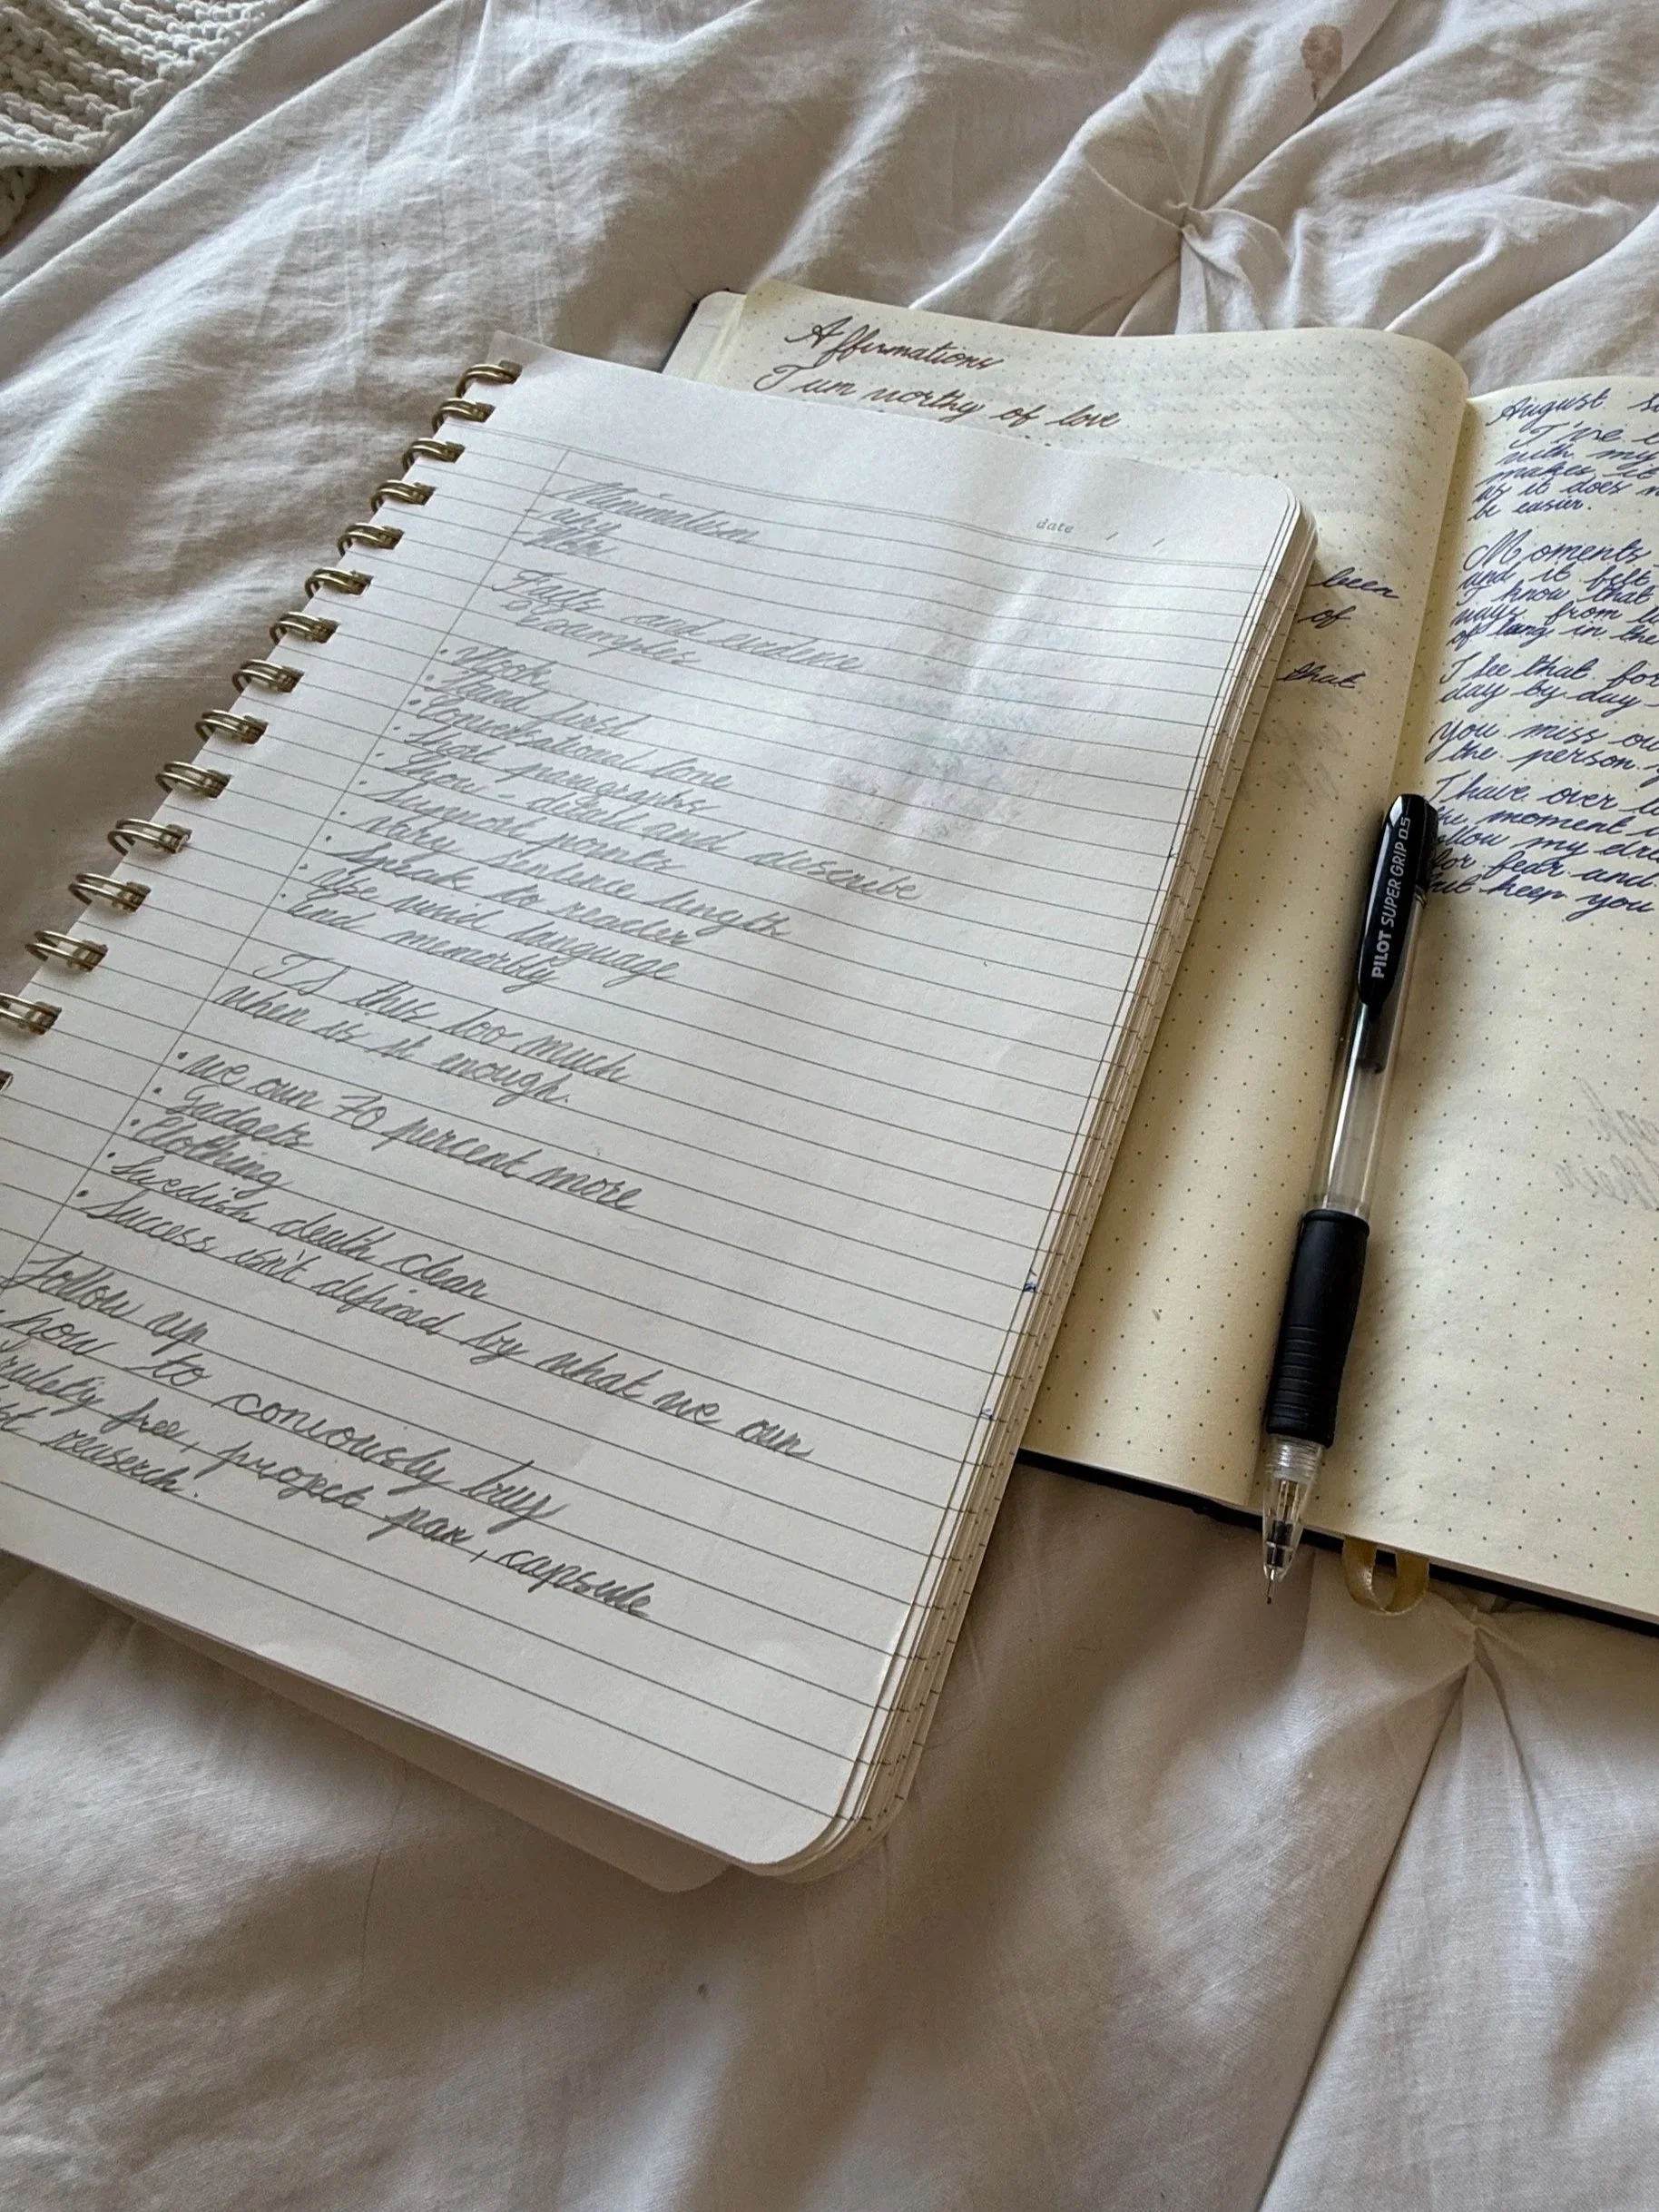 date / /
Minimalism
- Why
- How
Facts and evidence
Examples
• Hook
• Stand first
• Conversational tone
• Short paragraphs
• Show - detail and describe
• Support points
• Vary sentence length
• Speak to reader
• Use vivid language
• End memorbly
Is this too much
when is it enough.
• We own 70 percent more
• Gadgets
• Clothing
• Swedish death clean
• Success isn't defined by what we own
Follow up
how to conciously buy
free, project pan, capsule
reaserch.
Affirmations
I am worthy of love
been
of
that
August
I've
with my
makes it
as it does
be easier.
Moments
and it felt
I know that
from
of lang in the
I see that for
day by day
You miss
the person
I have over
the moment
my
for fear and
keep you
PILOT SUPER GRIP 0.5